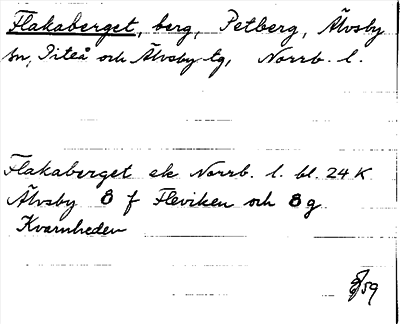 Flakaberget, berg, Petberg, Älvsby
sn, Piteå och Älvsby tg, Norrb. l.
Flakaberget ek Norrb. l. bl. 24 K
Älvsby 8 f Fleviken och 8 g
Kvarnheden
/59